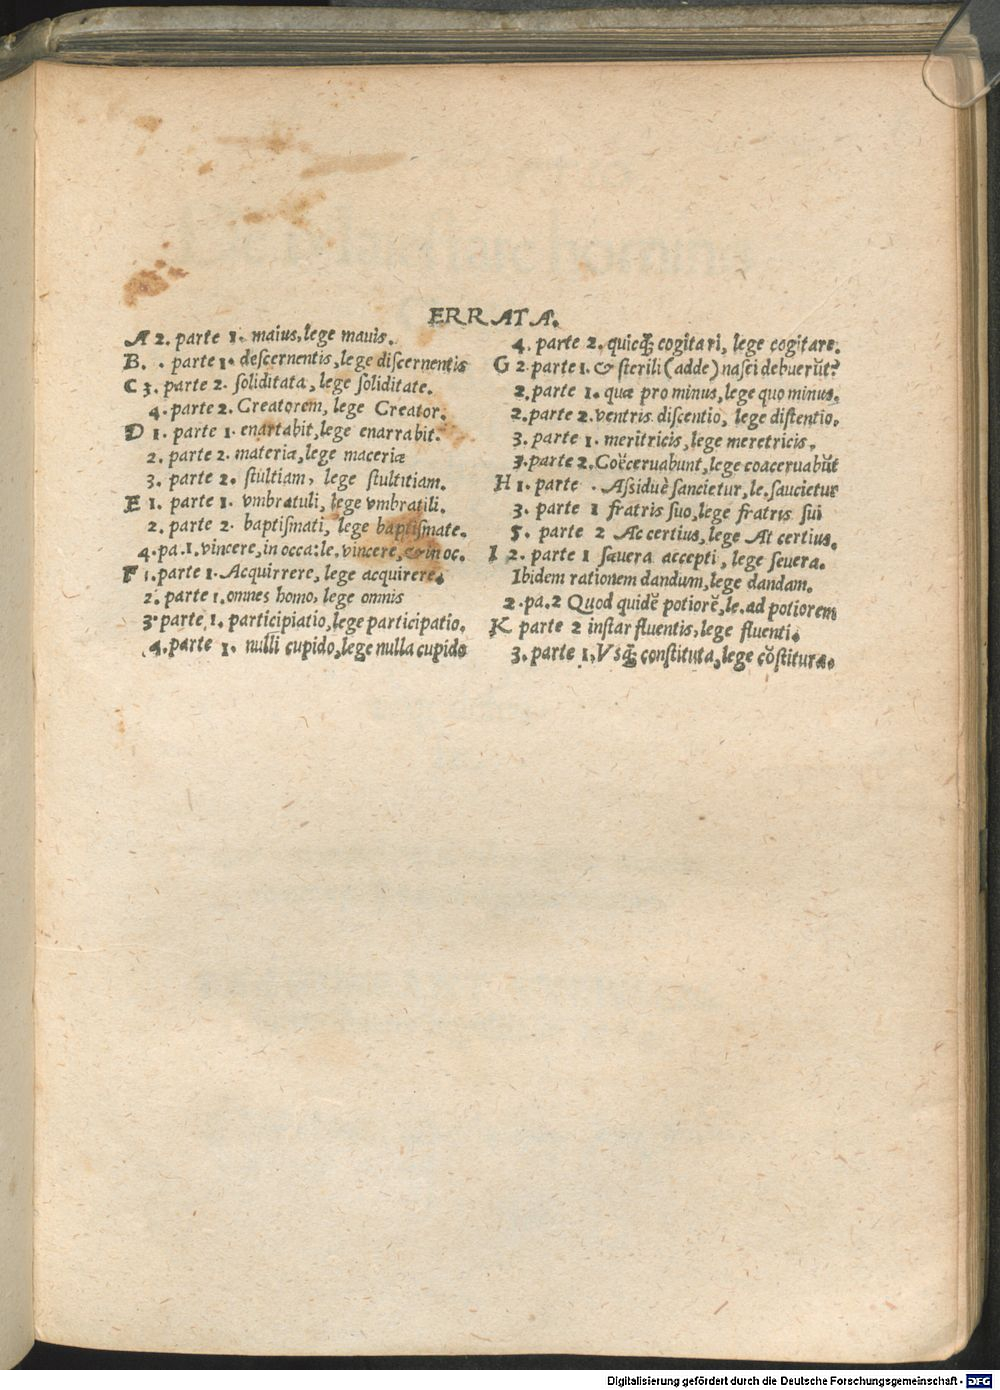 ERRATA.
A 2. parte 1. maius, lege mauis.
B. . parte 1. descernentis, lege discernentis
C 3. parte 2. soliditata, lege soliditate.
4. parte 2. Creatorem, lege Creator.
D 1. parte 1. enartabit, lege enarrabit.
2. parte 2. materia, lege maceriæ
3. parte 2. stultiam, lege stultitiam.
E 1. parte 1. vmbratuli, lege vmbratili.
2. parte 2. baptismati, lege baptismate.
4. pa. 1, vincere, in occa: le, vincere, & in oc.
F 1. parte 1. Acquirrere, lege acquirere.
2. parte 1. omnes homo, lege omnis
3. parte 1. participiatio, lege participatio.
4. parte 1. nulli cupido, lege nulla cupido
4. parte 2. quicq; cogitari, lege cogitare.
G 2. parte 1. & sterili (adde) nasci debuerũt?
2. parte 1. quæ pro minus, lege quo minus.
2. parte 2. ventris discentio, lege distentio.
3. parte 1. meritricis, lege meretricis.
3. parte 2. Coëceruabunt, lege coaceruabũt
H 1. parte . Assiduè sancietur, le. saucietur
3. parte 1 fratris suo, lege fratris sui
5. parte 2 Ac certius, lege At certius.
I 2. parte 1 sæuera accepti, lege seuera.
Ibidem rationem dandum, lege dandam.
2. pa. 2 Quod quidẽ potiorẽ, le. ad potiorem
K parte 2 instar fluentis, lege fluenti.
3. parte 1. Vsq; constituta, lege cõstituræ.
Digitalisierung gefördert durch die Deutsche Forschungsgemeinschaft - DFG